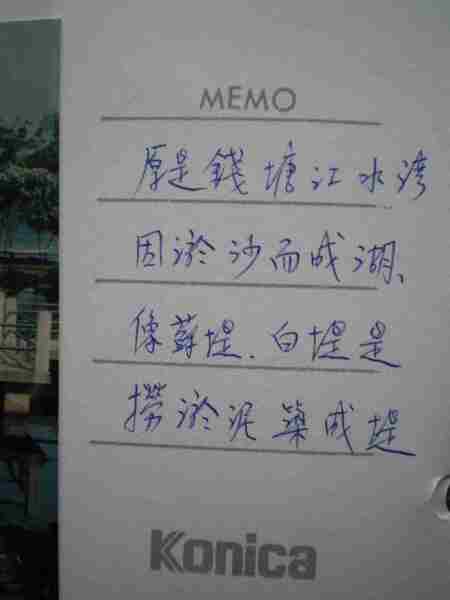 MEMO
原是錢塘江水湾
因淤沙而成湖、
像蘇堤.白堤是
撈淤泥築成堤
Konica